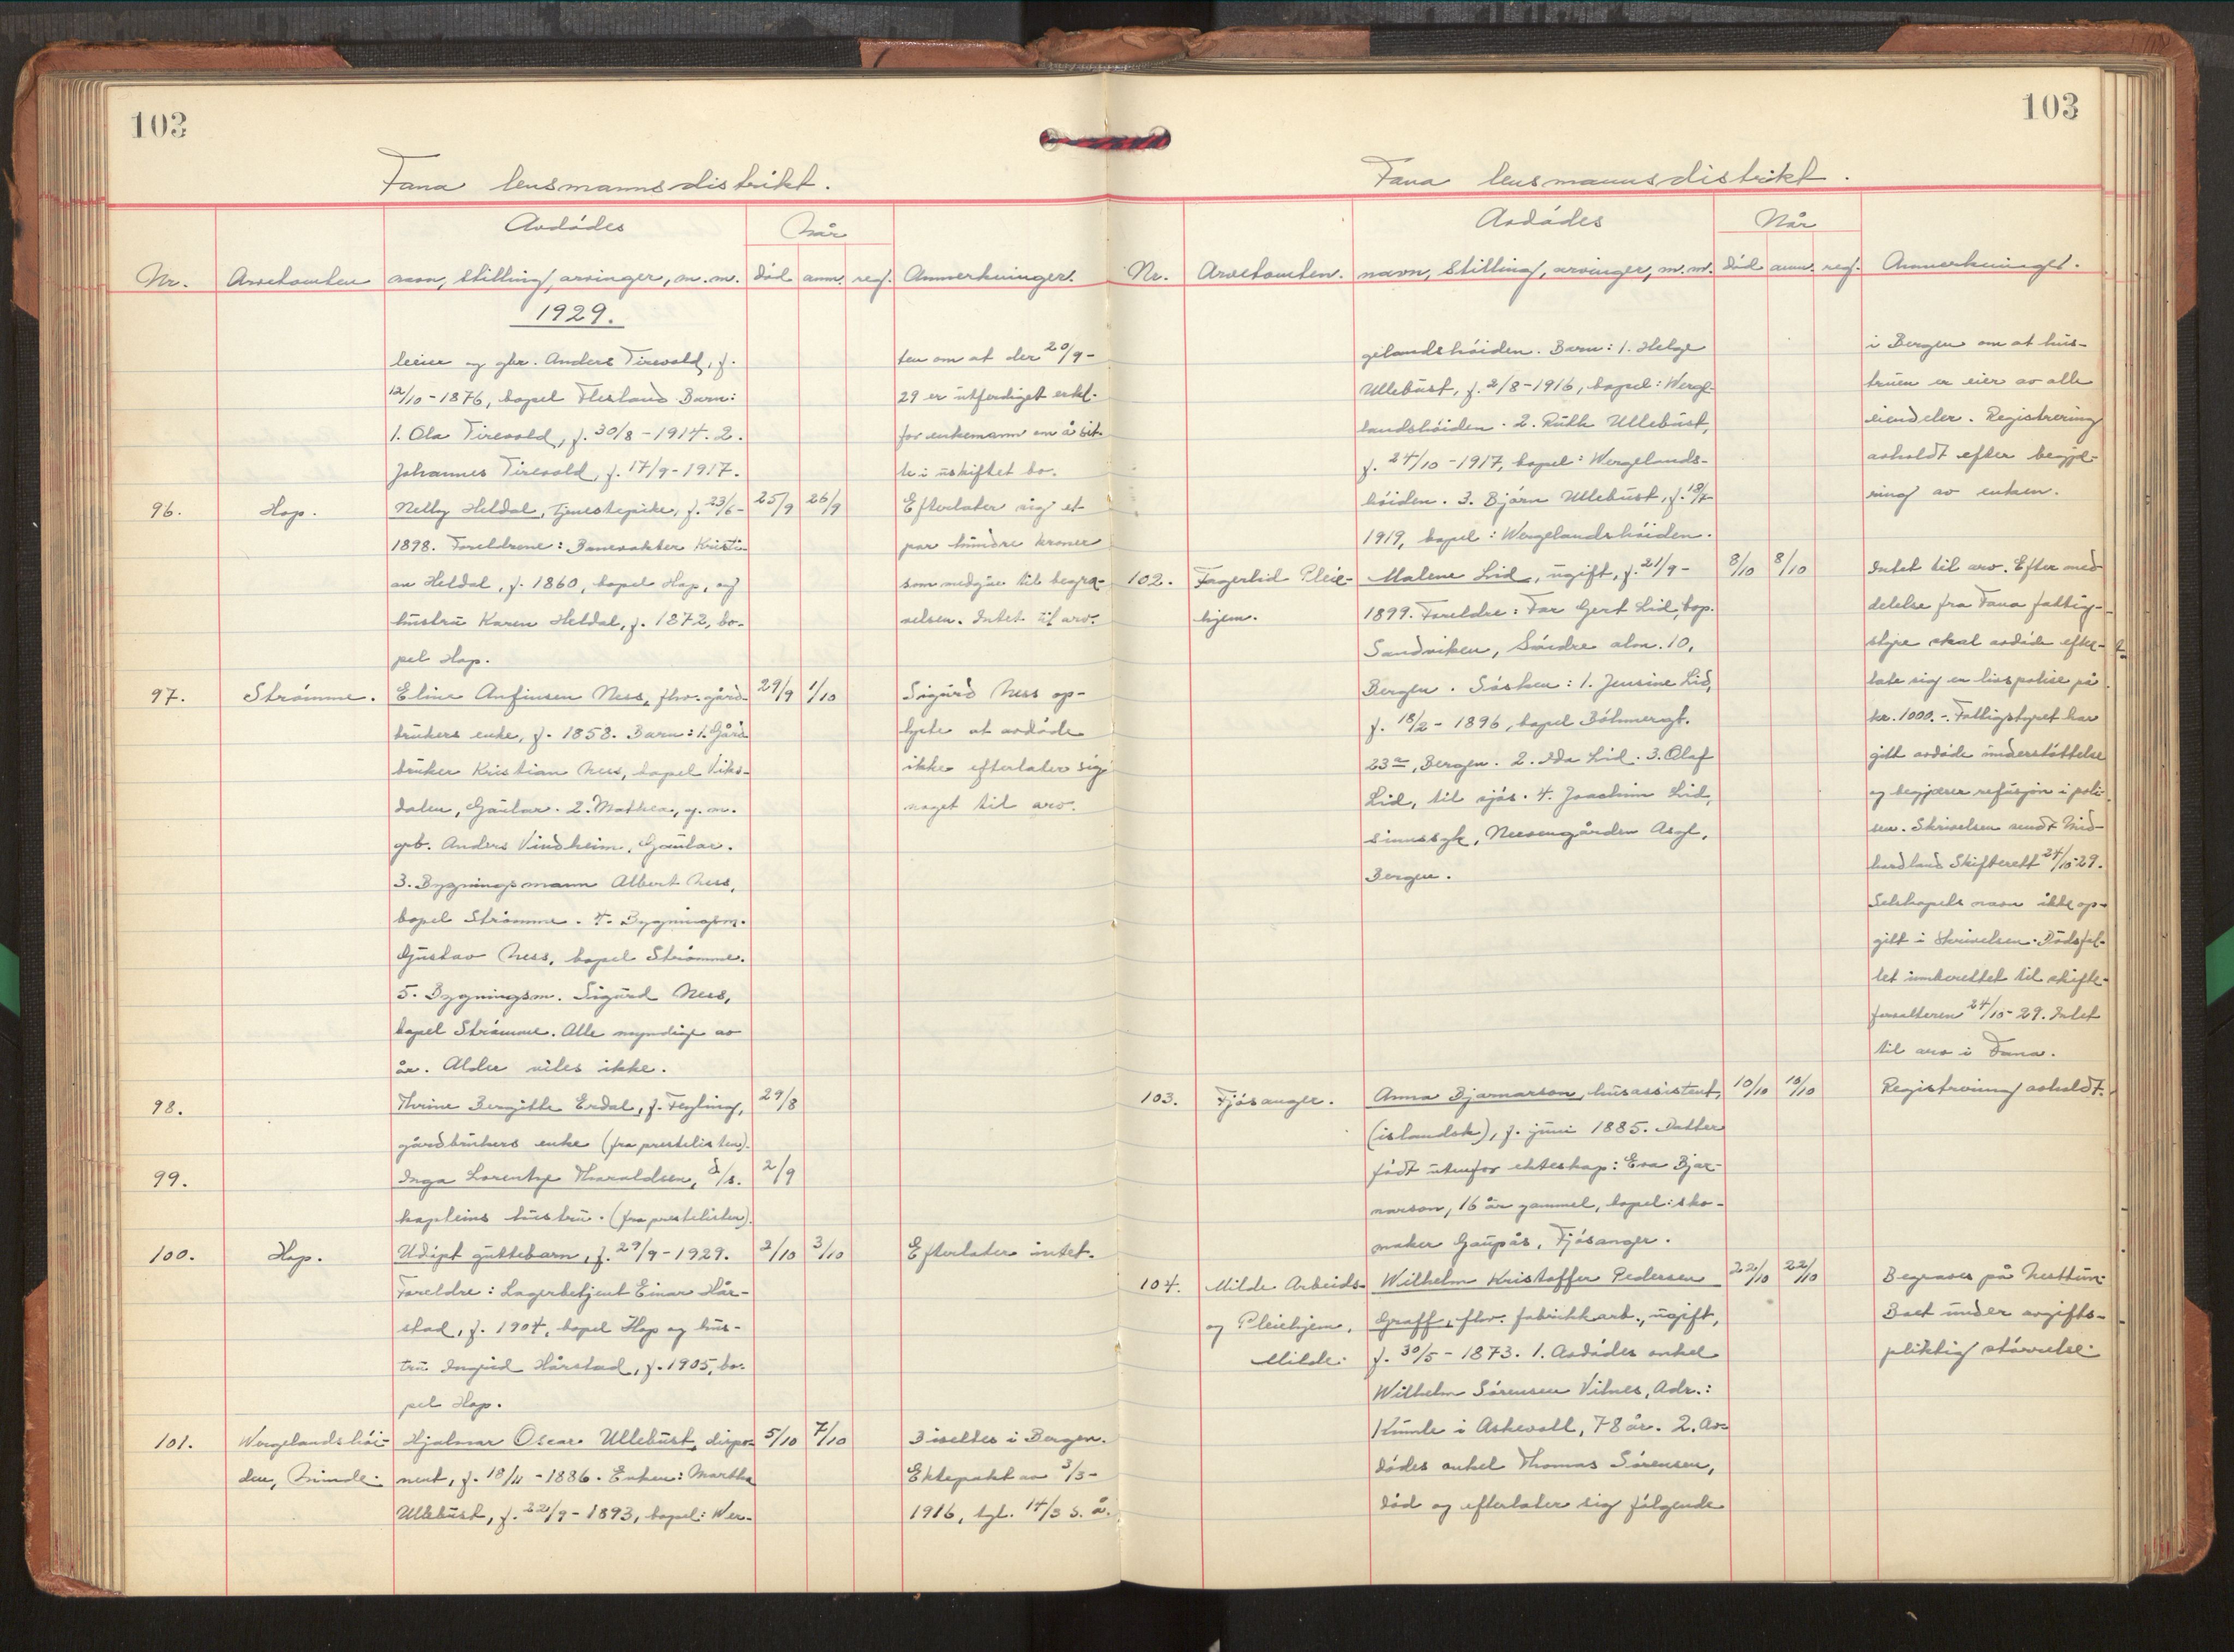 103
Fana lensmannsdistrikt.
Avdødes
Når
Nr. Arvetomten navn, stilling, arvinger, m.m. død anm. reg. Anmerkninger.
1929.
leier og gbr. Anders Tirevold, f.
12/10-1876, bopel Flesland. Barn:
1. Ola Tirevold, f. 30/8-1914. 2.
Johannes Tirevold, f. 17/9-1917.
ten om at der 20/9-
29 er utferdiget erkl.
for enkemann om å sit-
te i uskiftet bo.
96. Hop. Nelly Heldal, tjenestepike, f. 23/6- 25/9 26/9
1898. Foreldrene: Banevakter Kristi-
an Heldal, f. 1860, bopel Hop, og
hustru Karen Heldal, f. 1872, bo-
pel Hop.
Efterlater sig et
par hundre kroner
som medgår til begra-
velsen. Intet til arv.
97. Strømme. Eline Anfinsen Ness, fhv. gård- 29/9 1/10
brukers enke, f. 1858. Barn: 1. Gård
bruker Kristian Ness, bopel Viks-
dalen, Gaular. 2. Mathea, g. m.
gb. Anders Vindheim, Gaular.
3. Bygningsmann Albert Ness,
bopel Strømme. 4. Bygningsm.
Gustav Ness, bopel Strømme.
5. Bygningsm. Sigurd Ness,
bopel Strømme. Alle myndige av
år. Alder vites ikke.
Sigurd Ness op-
lyste at avdøde
ikke efterlater sig
noget til arv.
98. Thrine Bergitte Erdal, f. Tegling, 29/8
gårdbrukers enke (fra prestelisten).
99. Inga Lorentze Haraldsen, d/s. 2/9
kapteins hustru. (fra prestelisten).
100. Hop. Udøpt guttebarn, f. 29/9-1929. 2/10 3/10 Efterlater intet.
Foreldre: Lagerbetjent Einar Hår-
stad, f. 1904, bopel Hop og hus-
tru Ingrid Hårstad, f. 1905, bo-
pel Hop.
101. Wergelandshøi- Hjalmar Oscar Ullebust, dispo- 5/10 7/10 Biseltes i Bergen.
den, Minde. nent, f. 18/11-1886. Enken: Martha Ektepakt av 3/3-
Ullebust, f. 22/9-1893, bopel: Wer- 1916, tgl. 14/3 s. å.
103
Fana lensmannsdistrikt.
Avdødes
Når
Nr. Arvetomten. navn, stilling, arvinger, m.m. død anm. reg. Anmerkninger.
gelandshøiden. Barn: 1. Helge
Ullebust, f. 2/8-1916, bopel: Werge-
landshøiden. 2. Ruth Ullebust,
f. 24/10-1917, bopel: Wergelands-
høiden. 3. Bjørn Ullebust, f. 18/7-
1919, bopel: Wergelandshøiden.
i Bergen om at hus-
truen er eier av alle
eiendeler. Registrering
avholdt efter begjæ-
ring av enken.
102. Fagerlid Pleie- Malene Lid, ugift, f. 21/9- 8/10 8/10
hjem. 1899. Foreldre: Far Gert Lid, bop.
Sandviken, Søndre alm. 10,
Bergen. Søsken: 1. Jensine Lid,
f. 18/2-1896, bopel Böhmergt.
23a, Bergen. 2. Ida Lid. 3. Olaf
Lid, til sjøs. 4. Joachim Lid,
sinnssyk, Neevengården Asyl,
Bergen.
Intet til arv. Efter med
delelse fra Fana fattig-
styre skal avdøde efter-
late sig en livspolise på
kr. 1000.-. Fattigstyret har
gitt avdøde understøttelse
og begjærer refusjon i poli-
sen. Skrivelsen sendt Mid-
hordland Skifterett 24/10-29.
Selskapets navn ikke op-
gitt i skrivelsen. Dødsfal-
let innberettet til skifte-
forvalteren 24/10-29. Intet
til arv i Fana.
103. Fjøsanger. Anna Bjarnarson, husassistent, 10/10 10/10 Registrering avholdt.
(islandsk), f. juni 1885. Datter
født utenfor ekteskap: Eva Bjar-
narson, 16 år gammel, bopel: sko-
maker Gaupås, Fjøsanger.
104. Milde Arbeids- Wilhelm Kristoffer Pedersen 22/10 22/10 Begraves på Nesttun.
og Pleiehjem, Graff, fhv. fabrikkarb., ugift, Boet under avgifts-
Milde. f. 30/5-1873. 1. Avdødes onkel pliktig størrelse.
Wilhelm Sørensen Vilnes, Adr.:
Kumle i Askevoll, 78 år. 2. Av-
dødes onkel Thomas Sørensen,
død og efterlater sig følgende